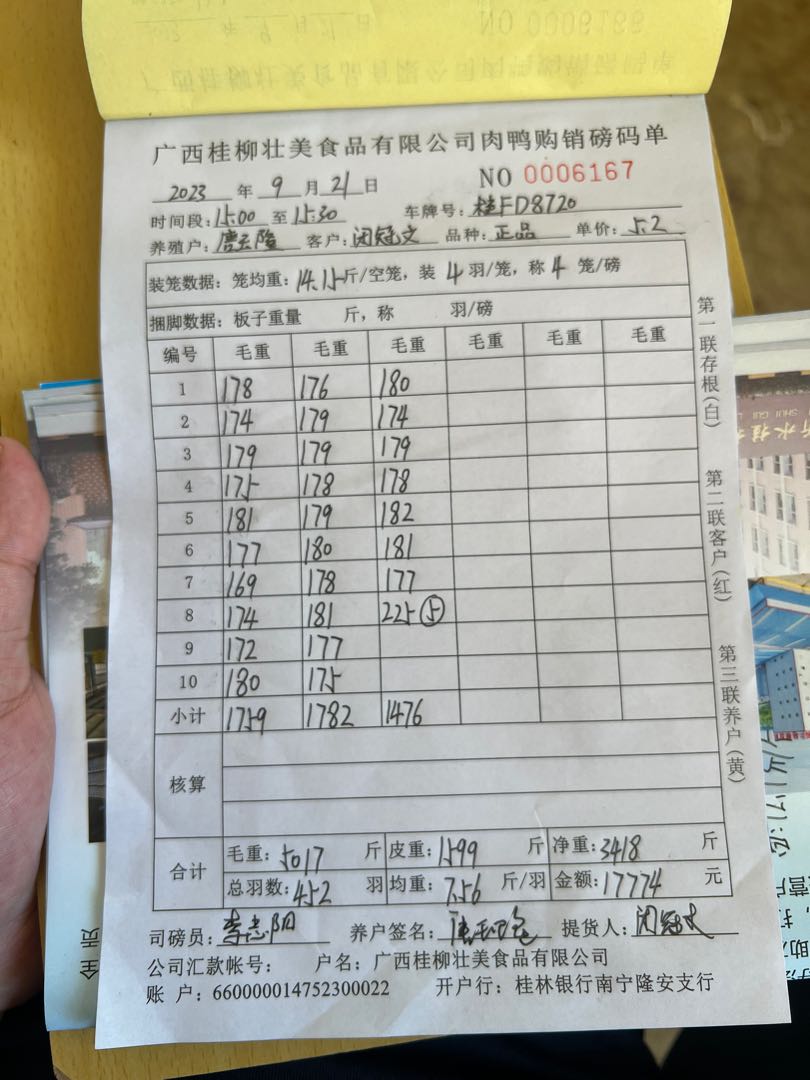 广西桂柳壮美食品有限公司肉鸭购销磅码单
2023 年 9 月 21 日 NO 0006167
时间段: 15:00 至 15:30 车牌号: 桂FD8720
养殖户: 客户: 闭冠文 品种: 正品 单价: 5.2
装笼数据: 笼均重: 14.15 斤/空笼, 装 4 羽/笼, 称 4 笼/磅
捆脚数据: 板子重量 斤, 称 羽/磅
编号 毛重 毛重 毛重 毛重 毛重 毛重
1 178 176 180
2 174 179 174
3 179 179 179
4 175 178 178
5 181 179 182
6 177 180 181
7 169 178 177
8 174 181 225 ⑤
9 172 177
10 180 175
小计 1759 1782 1476
核算
合计
毛重: 5017 斤 皮重: 1599 斤 净重: 3418 斤
总羽数: 452 羽 均重: 7.56 斤/羽 金额: 17774 元
司磅员: 李志阳 养户签名: 提货人: 闭冠文
公司汇款帐号: 户名: 广西桂柳壮美食品有限公司
账 户: 660000014752300022 开户行: 桂林银行南宁隆安支行
第一联存根(白)
第二联客户(红)
第三联养户(黄)
NO 0006166
SHUI GUI